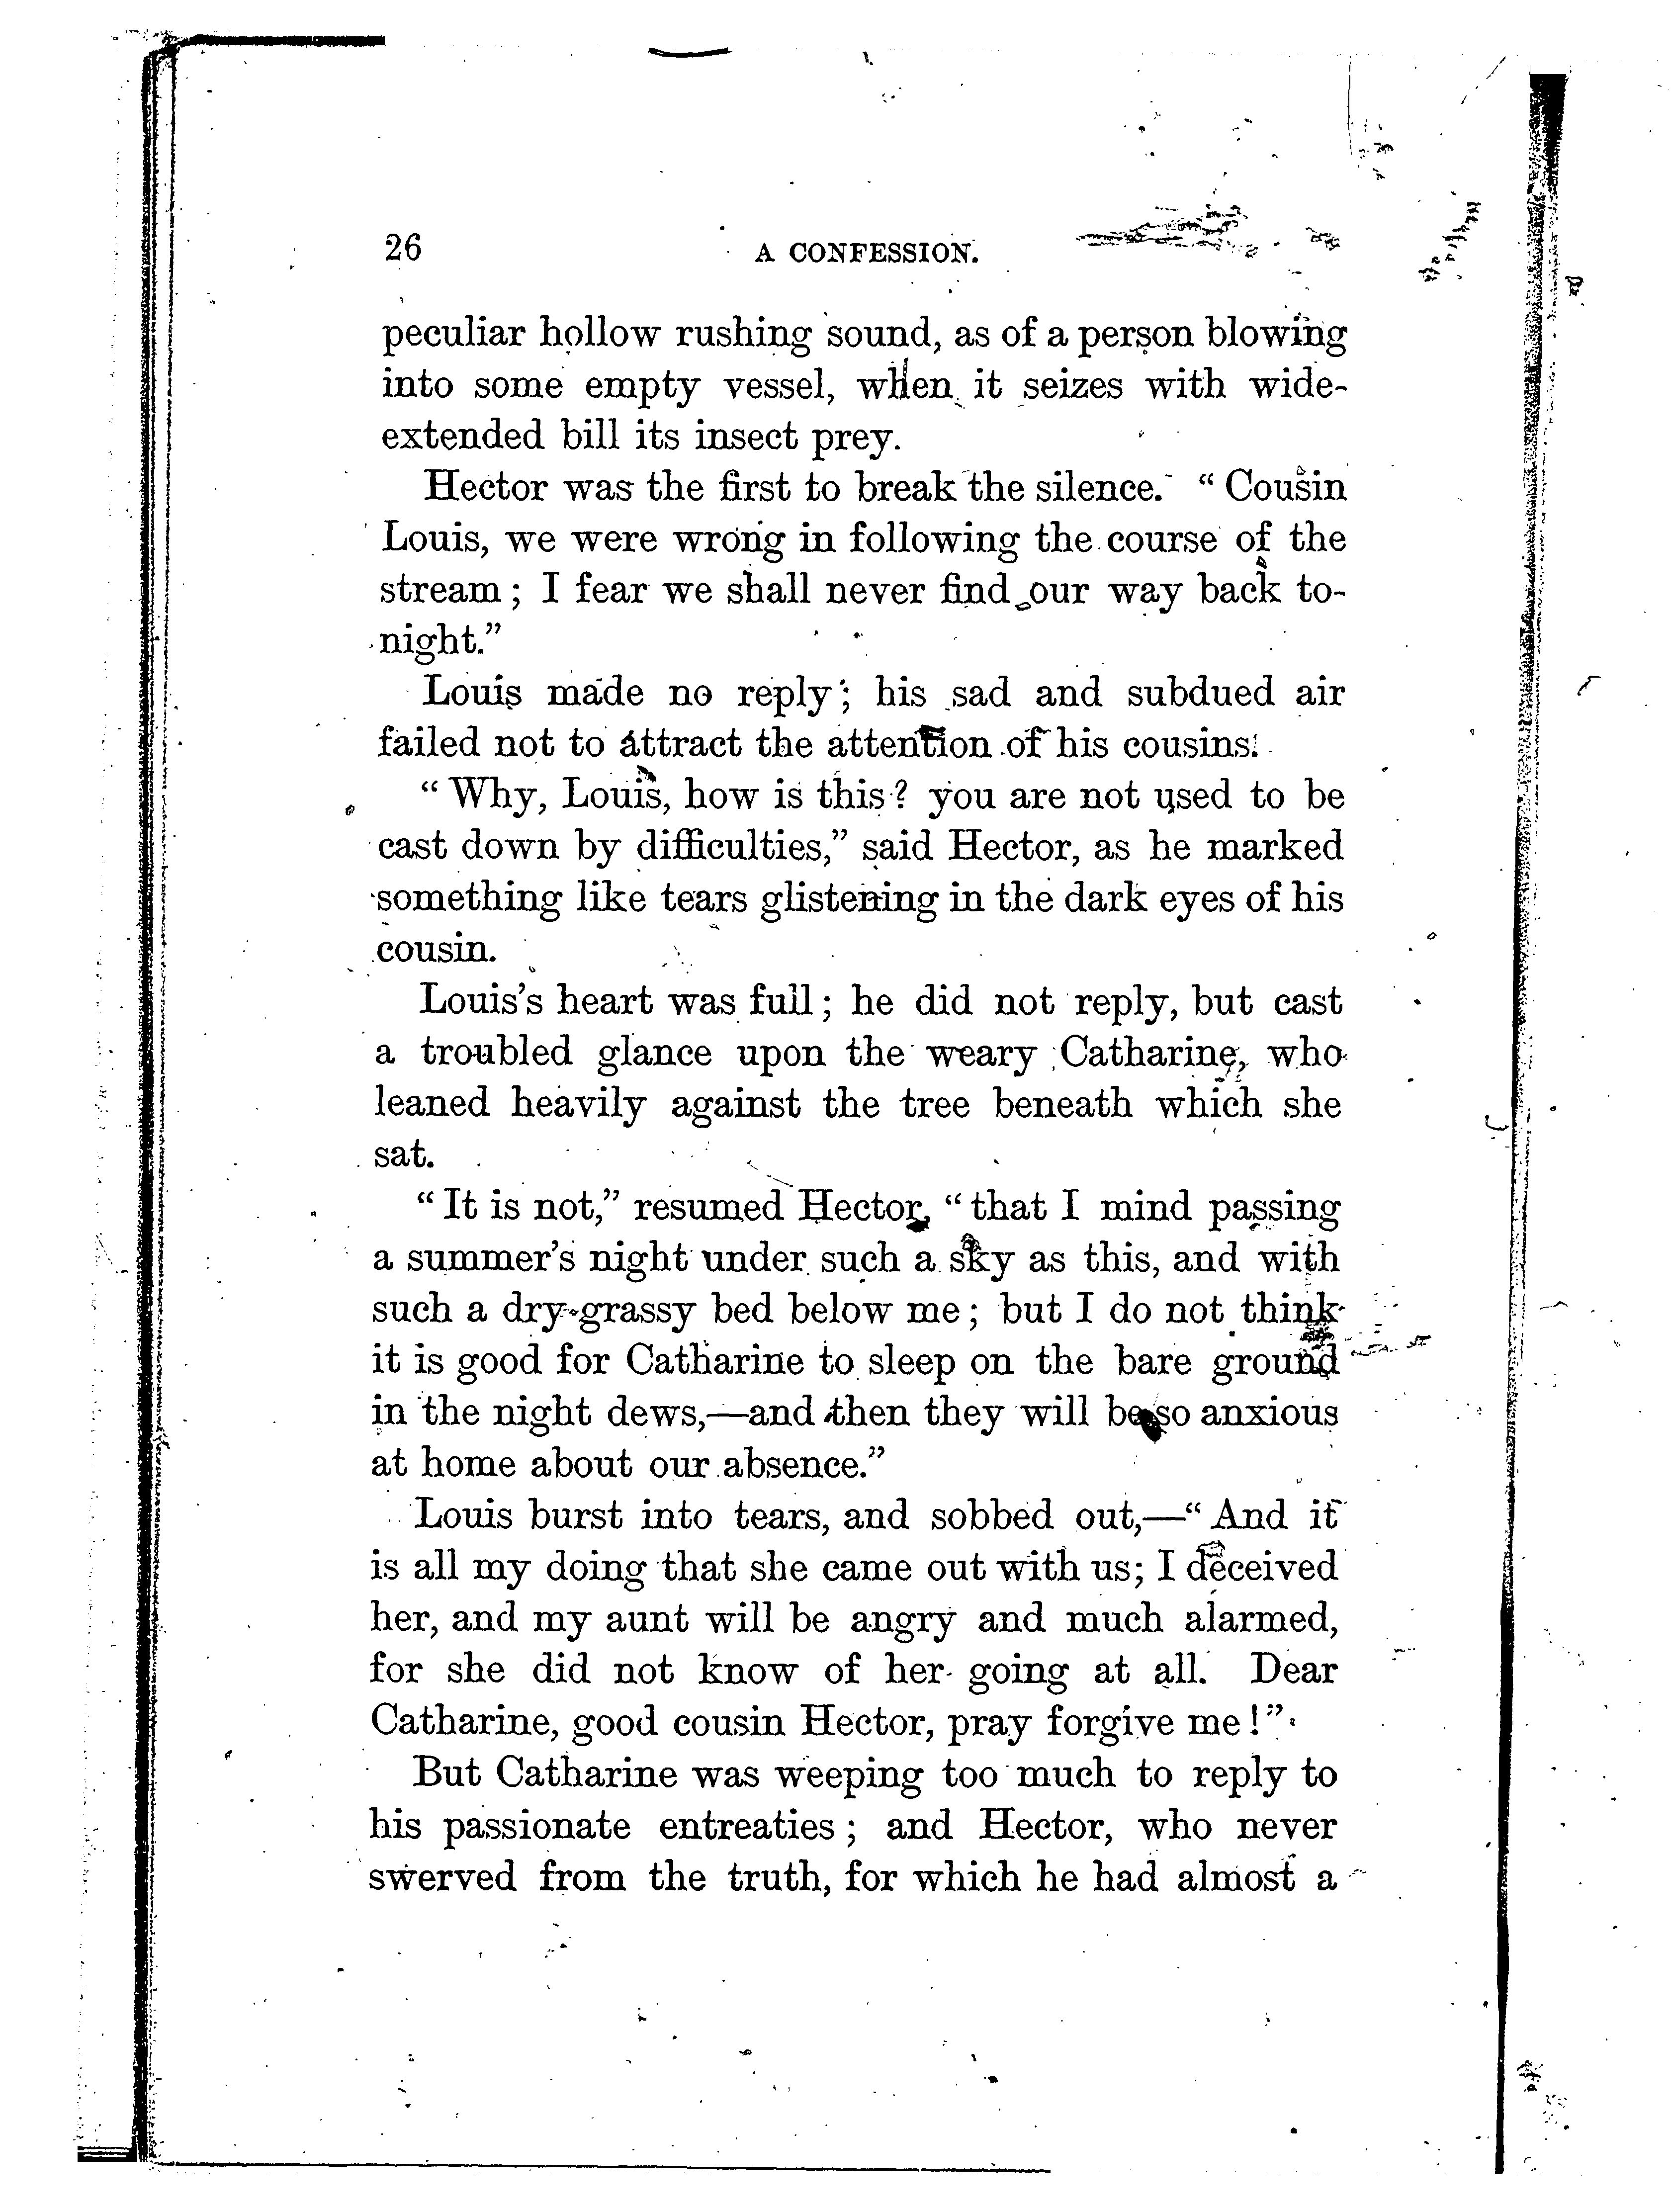 26 A CONFESSION.
peculiar hollow rushing sound, as of a person blowing
into some empty vessel, when it seizes with wide-
extended bill its insect prey.
Hector was the first to break the silence. “Cousin
Louis, we were wrong in following the course of the
stream; I fear we shall never find our way back to-
night.”
Louis made no reply; his sad and subdued air
failed not to attract the attention of his cousins.
“Why, Louis, how is this? you are not used to be
cast down by difficulties,” said Hector, as he marked
something like tears glistening in the dark eyes of his
cousin.
Louis’s heart was full; he did not reply, but cast
a troubled glance upon the weary Catharine, who
leaned heavily against the tree beneath which she
sat.
“It is not,” resumed Hector, “that I mind passing
a summer’s night under such a sky as this, and with
such a dry grassy bed below me; but I do not think
it is good for Catharine to sleep on the bare ground
in the night dews,—and then they will be so anxious
at home about our absence.”
Louis burst into tears, and sobbed out,—“And it
is all my doing that she came out with us; I deceived
her, and my aunt will be angry and much alarmed,
for she did not know of her going at all. Dear
Catharine, good cousin Hector, pray forgive me!”
But Catharine was weeping too much to reply to
his passionate entreaties; and Hector, who never
swerved from the truth, for which he had almost a